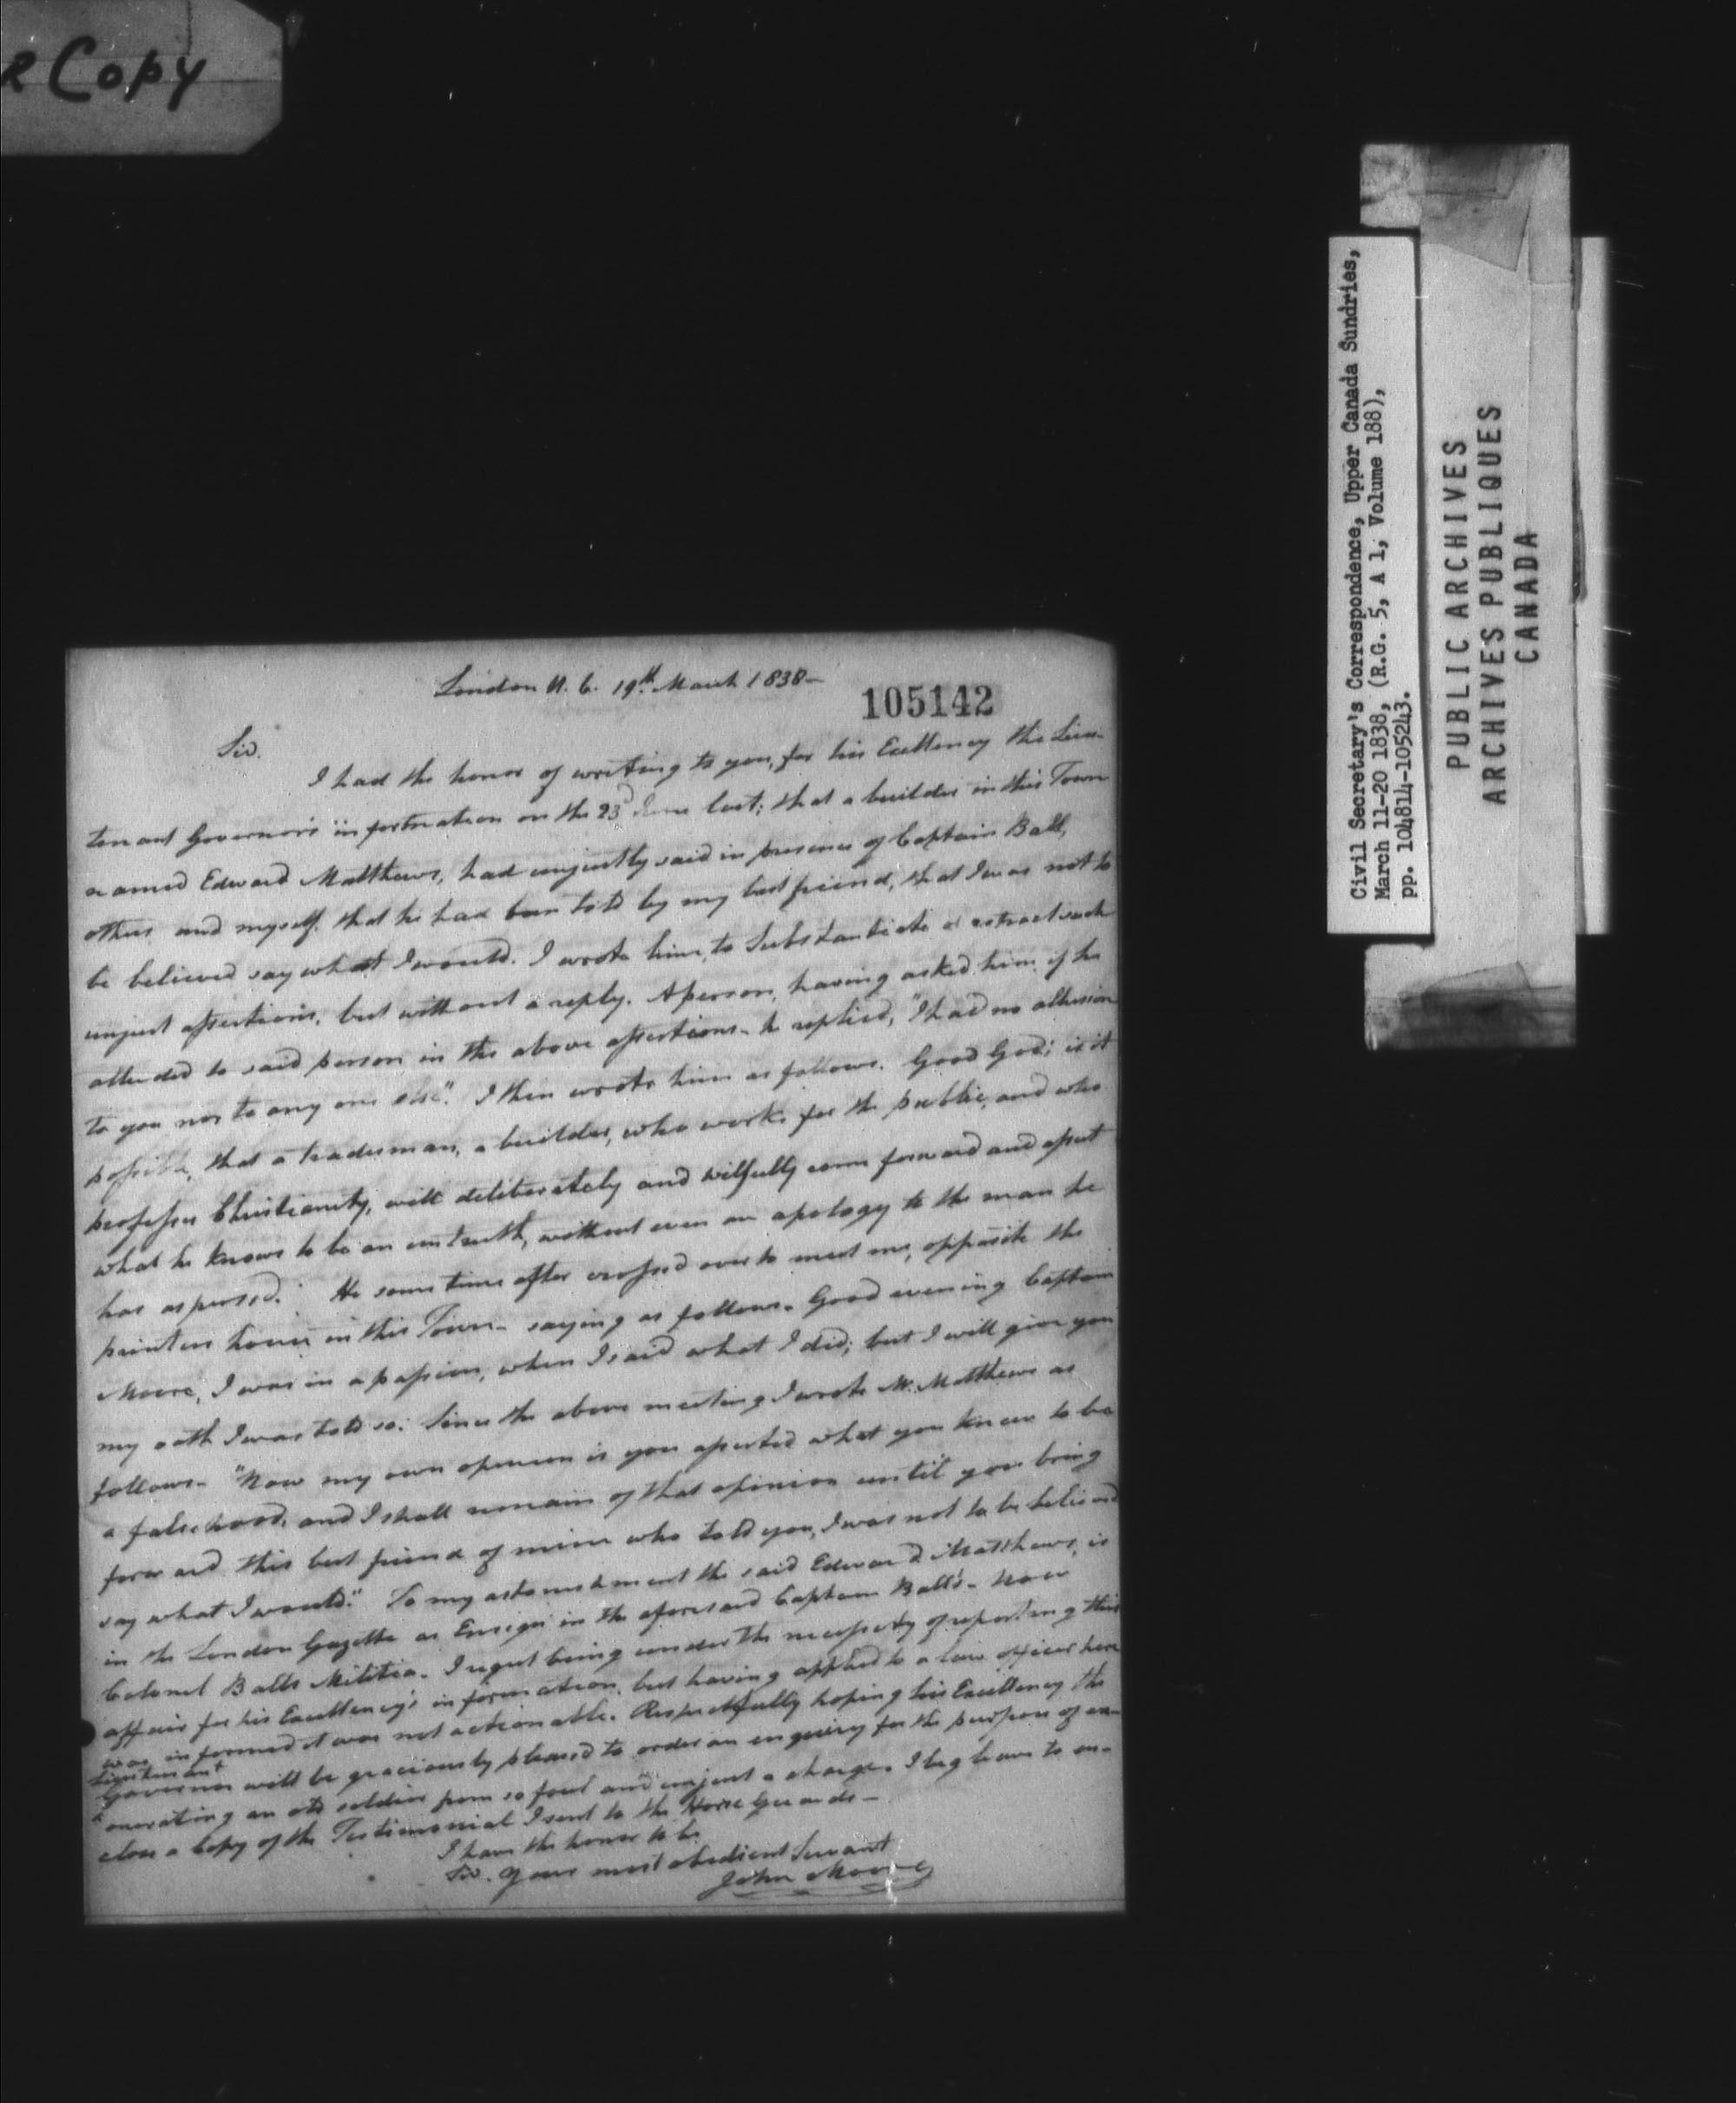 R Copy
London U. C. 19th March 1838—
105142
Sir.
I had the honor of writing to you, for his Excellency the Lieu-
tenant Governor's information on the 23d June last; that a builder in this Town
named Edward Matthews, had unjustly said in presence of Captain Ball,
others and myself, that he had been told by my best friend, that I was not to
be believed say what I would. I wrote him, to Substantiate or retract such
unjust assertions, but without a reply. A person, having asked him if he
alluded to said person in the above assertions - he replied, "I had no allusion
to you nor to any one else". I then wrote him as follows. Good God; is it
possible, that a tradesman, a builder, who works for the public, and who
professes Christianity, will deliberately and wilfully come forward and assert
what he knows to be an untruth, without even an apology to the man he
has aspersed. He some time after crossed over to meet me, opposite the
printers house in this Town - saying as follows. Good evening Captain
Moore, I was in a passion, when I said what I did; but I will give you
my oath I was told so. Since the above meeting I wrote Mr. Matthews as
follows - "Now my own openion is you asserted what you knew to be
a falsehood, and I shall remain of that opinion until you bring
forward this best friend of mine who told you, I was not to be believed
say what I would." To my astonishment the said Edward Matthews, is
in the London Gazette as Ensign in the aforesaid Captain Ball's - now
Colonel Balls Militia. I regret being under the necessity of reporting this
affair for his Excellency's information, but having applied to a law officer here
was informed it was not actionable. Respectfully hoping his Excellency the
Lieutenant
Governor will be graciously pleased to order an enquiry for the purpose of ex-
onerating an old soldier from so foul and unjust a charge. I beg leave to en-
close a Copy of the Testimonial I sent to the Horse Guards—
I have the honor to be
Sir. Your most obedient Servant
John Moore
Civil Secretary's Correspondence, Upper Canada Sundries,
March 11-20 1838, (R.G. 5, A 1, Volume 188),
pp. 104814-105243.
PUBLIC ARCHIVES
ARCHIVES PUBLIQUES
CANADA